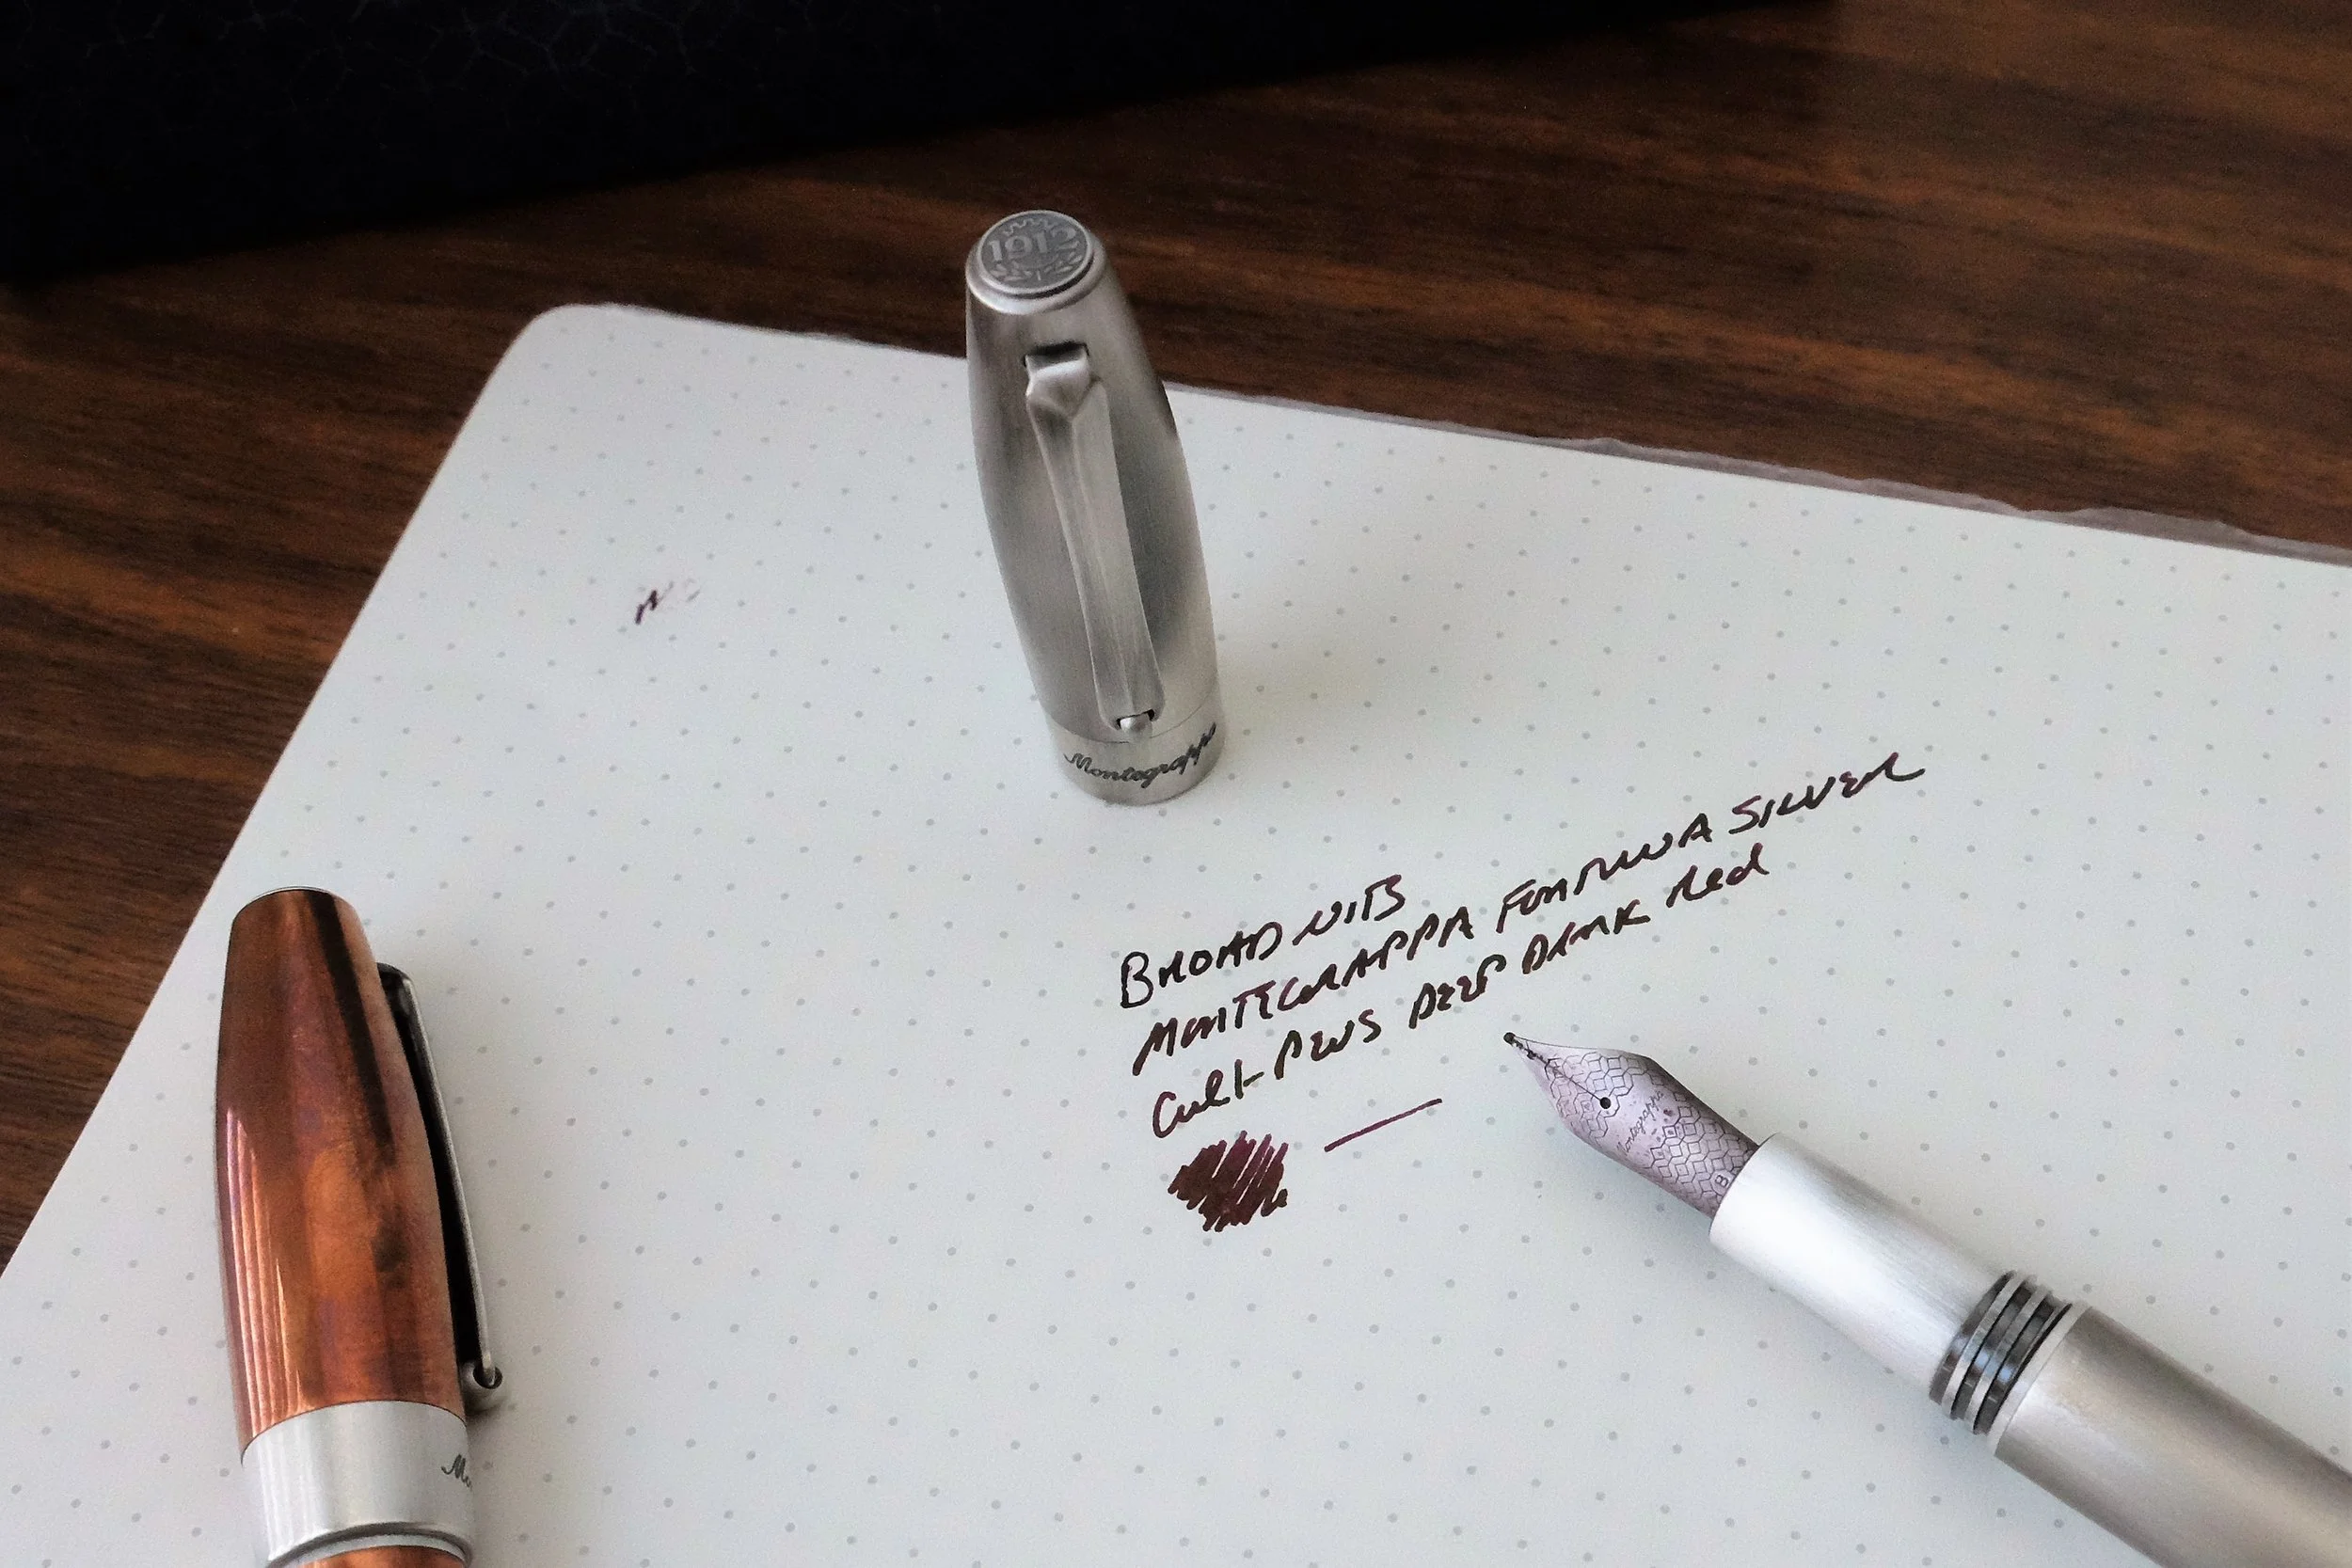 1912
Montegrappa
BROAD NIB
MONTEGRAPPA FORTUNA SILVER
Cult Pens DEEP DARK Red
Montegrappa
B
Mo